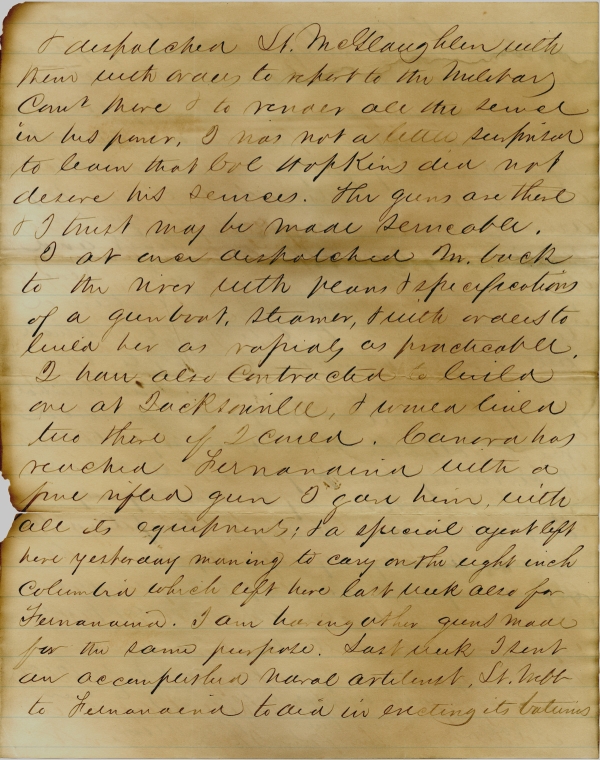 I despatched Lt. McGlaughlen with
them with orders to report to the Military
Comt there & to render all the service
in his power. I was not a little surprised
to learn that Col Hopkins did not
desire his services. The guns are there
& I trust may be made serviceable.
I at once despatched M. back
to the river with plans & specifications
of a gunboat, steamer, & with orders to
build her as rapidly as practicable.
I have also contracted to build
one at Jacksonville, & would build
two there if I could. Canova has
reached Fernandina with a
fine rifled gun I gave him, with
all its equipments; & a special agent left
here yesterday morning to cary on the eight inch
Columbiad which left here last week also for
Fernandina. I am having other guns made
for the same purpose. Last week I sent
an accomplished naval artilerist, Lt. Webb
to Fernandina to aid in erecting its batteries